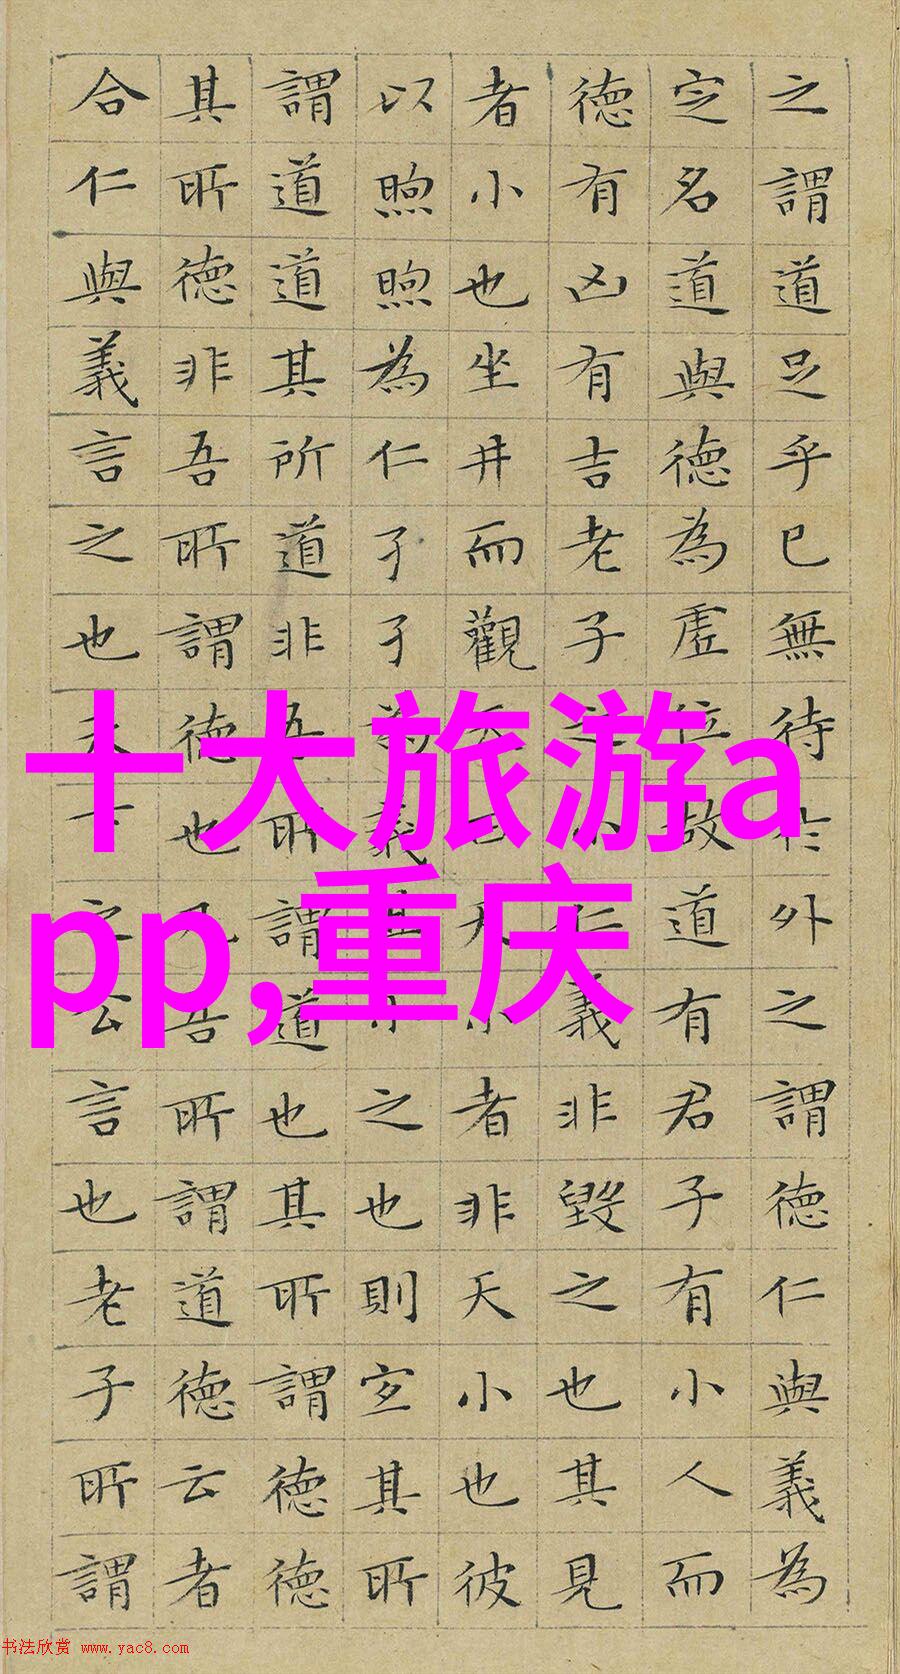 之謂道足乎已無待於外之謂德仁與義為
定名道與德為虛位故道有君子有小人而
德有凶有吉老子之小仁義非毀之也其見
者小也坐井而觀天曰天小者非天小也彼
以煦煦為仁孑孑為義其小之也則宜其所
謂道道其所道非吾所謂道也其所謂德德
其所德非吾所謂德也凡吾所謂道德云者
合仁與義言之也天下之公言也老子所謂
十大旅游a
pp,重庆
书法欣赏 www.yac8.com